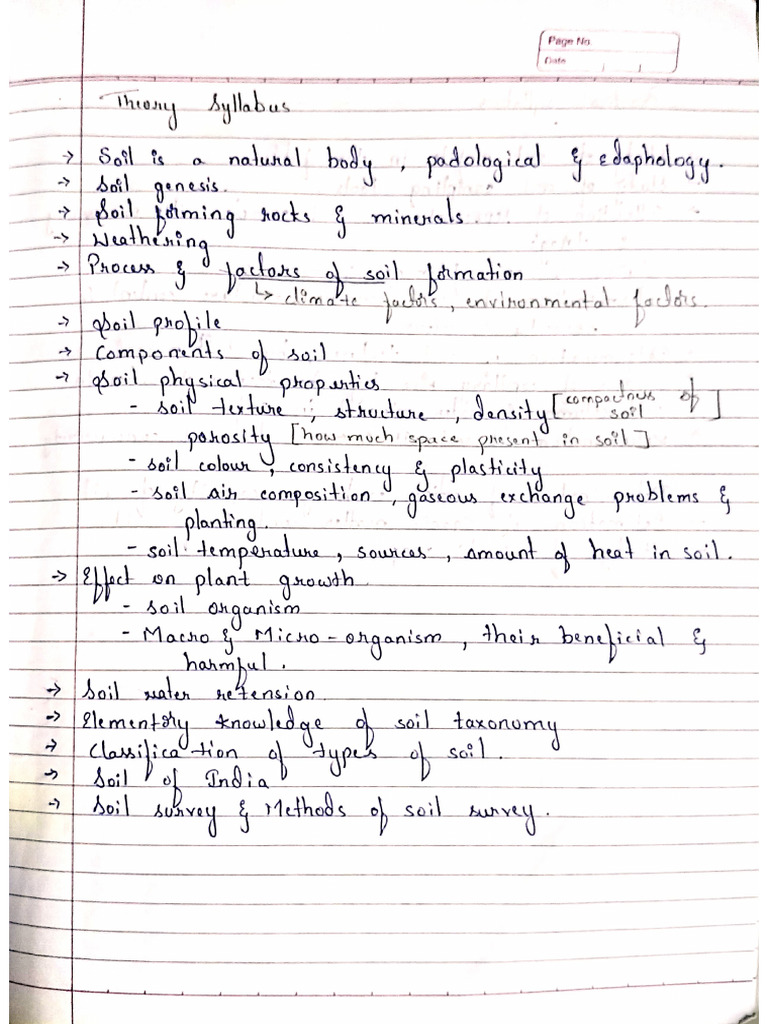 Page No.
Date
Theory Syllabus
→ Soil is a natural body , padological & edaphology.
→ Soil genesis.
→ Soil forming rocks & minerals.
→ Weathering
→ Process & factors of soil formation
↳ climate factors, environmental factors.
→ Soil profile
→ Components of soil
→ Soil physical properties
- soil texture , structure , density [compactness of soil]
porosity [how much space present in soil]
- soil colour , consistency & plasticity
- soil air composition , gaseous exchange problems &
planting.
- soil temperature , sources , amount of heat in soil.
→ Effect on plant growth
- soil organism
- Macro & Micro-organism , their beneficial &
harmful.
→ Soil water retension
→ Elementry knowledge of soil taxonomy
→ Classification of types of soil.
→ Soil of India
→ Soil survey & Methods of soil survey.